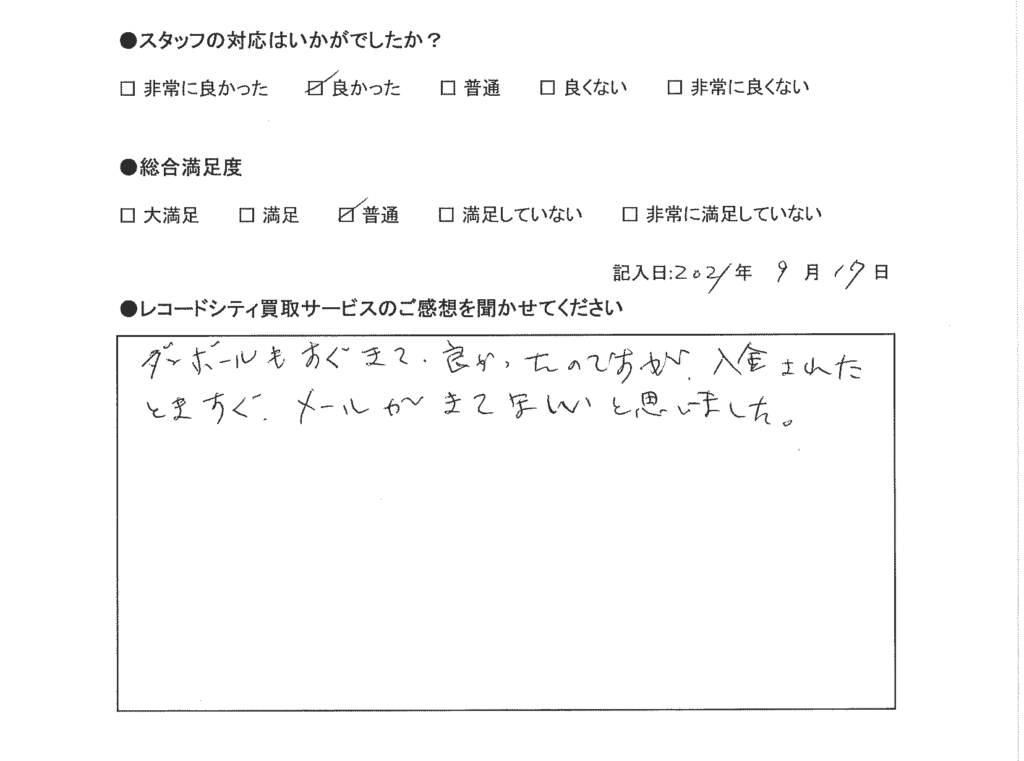 ●スタッフの対応はいかがでしたか？
□ 非常に良かった ☑ 良かった □ 普通 □ 良くない □ 非常に良くない
●総合満足度
□ 大満足 □ 満足 ☑ 普通 □ 満足していない □ 非常に満足していない
記入日:2021年 9月 17日
●レコードシティ買取サービスのご感想を聞かせてください
ダンボールもすぐきて、良かったのですが、入金された
ときすぐ、メールがきてほしいと思いました。